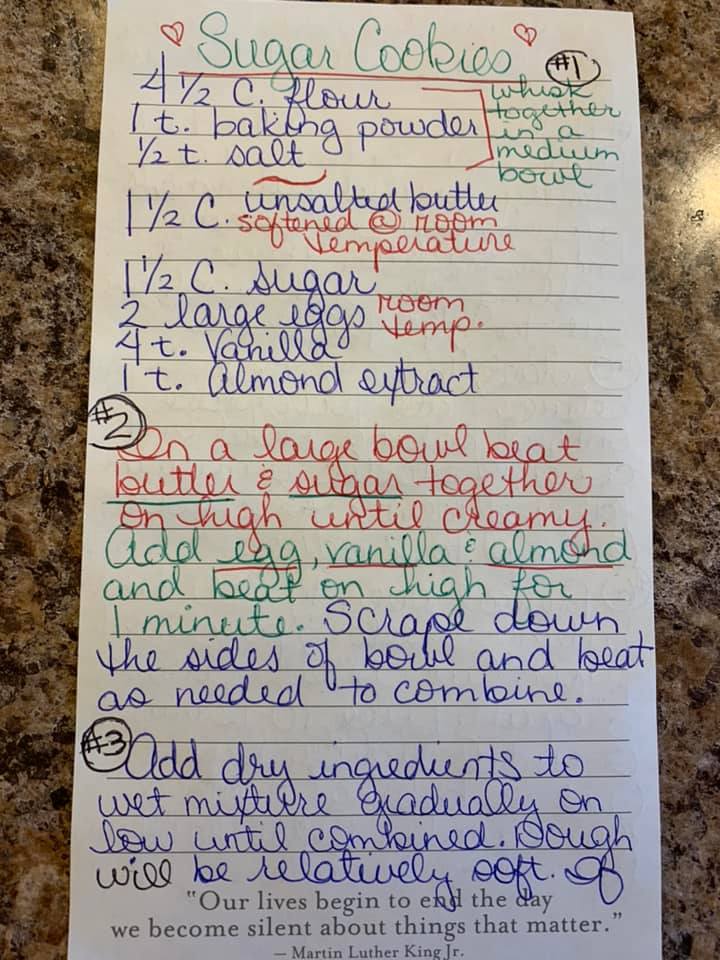 Sugar Cookies
#1
4 1/2 C. flour
1 t. baking powder
1/2 t. salt
whisk
together
in a
medium
bowl
1 1/2 C. unsalted butter
softened @ room
temperature
1 1/2 C. sugar
2 large eggs room
temp.
4 t. Vanilla
1 t. Almond extract
#2
In a large bowl beat
butter & sugar together
on high until creamy.
Add egg, vanilla & almond
and beat on high for
1 minute. Scrape down
the sides of bowl and beat
as needed to combine.
#3 Add dry ingredients to
wet mixture gradually on
low until combined. Dough
will be relatively soft. If
"Our lives begin to end the day
we become silent about things that matter."
— Martin Luther King Jr.